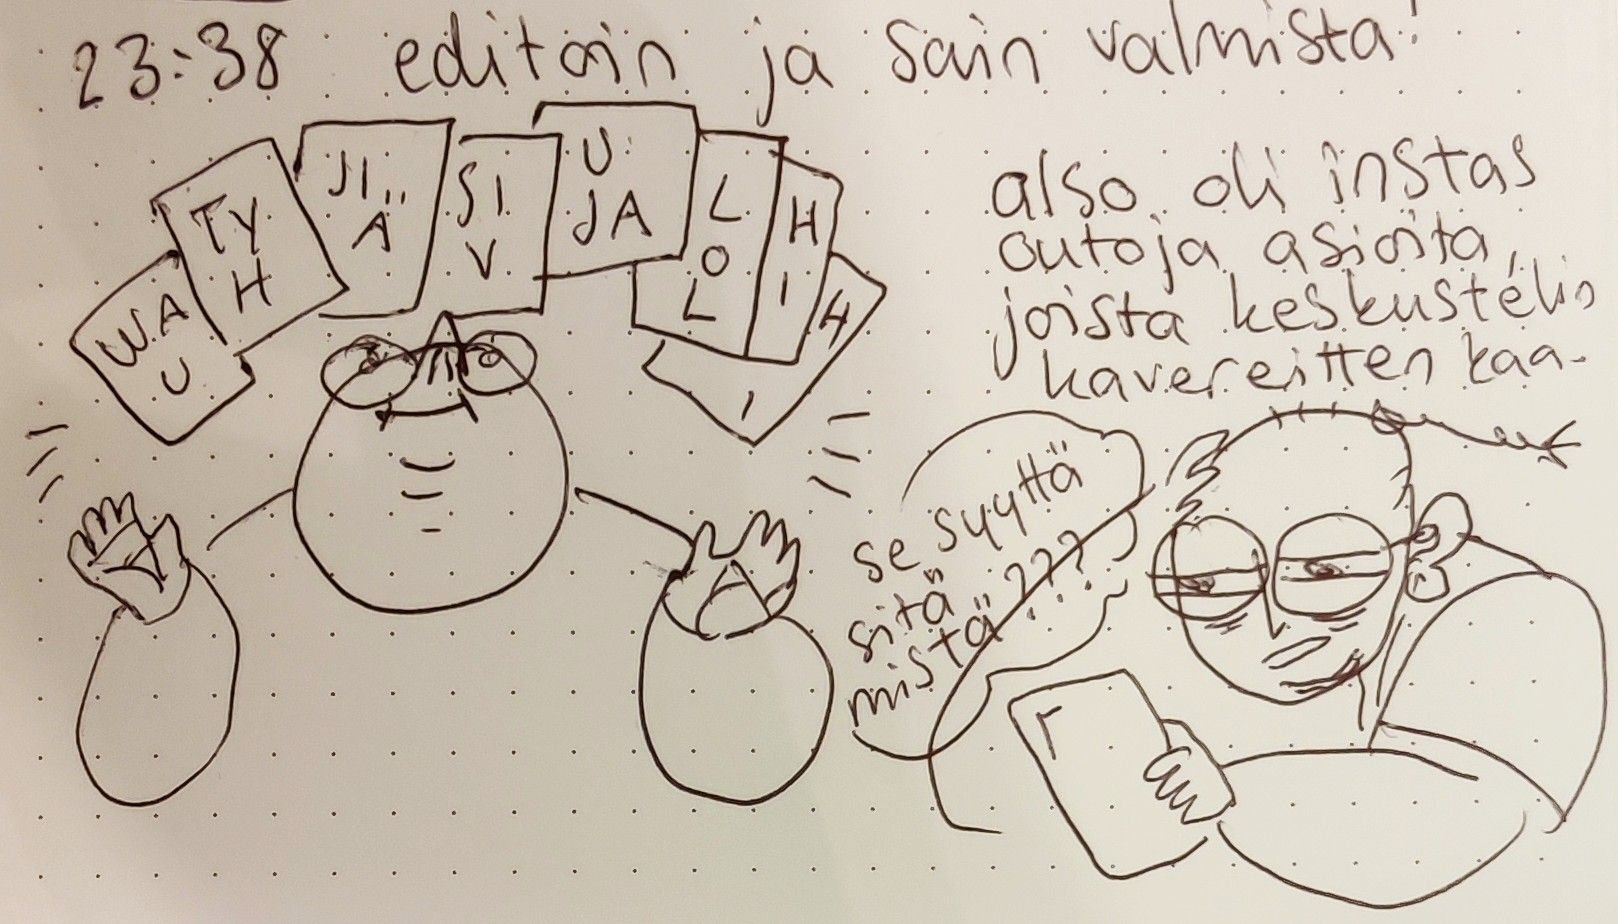 23:38 editoin ja sain valmista!
WA
U
TY
H
JI
Ä
SI
V
U
JA
L
O
L
H
I
H
I
also oli instas
outoja asioita,
joista keskustelin
kavereitten kaa.
se syyttä
sitä
mistä???